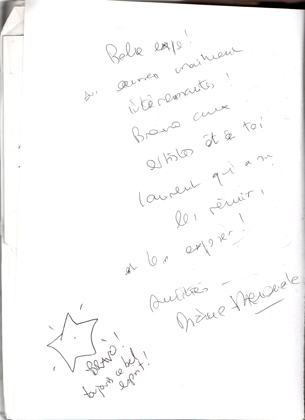 Belle expo!
des œuvres vraiment
intéressantes!
Bravo aux
artistes et à toi
Laurent qui a su
les réunir,
et les exposer!
Amitiés -
Diane
BRAVO!
toujours ce bel
esprit!